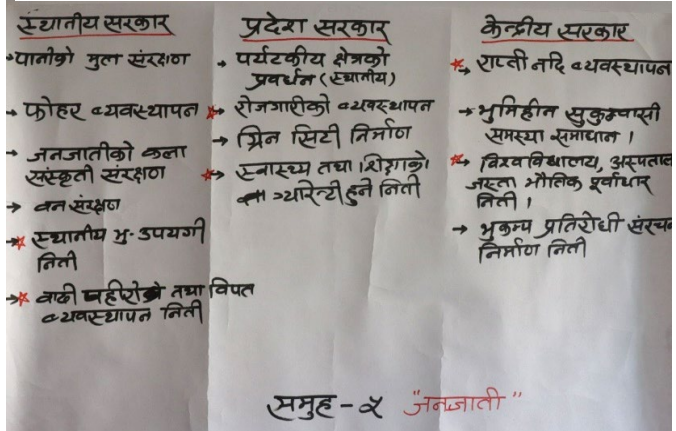 स्थानीय सरकार
→ पानीको मुल संरक्षण
→ फोहर व्यवस्थापन
→ जनजातीको कला
संस्कृती संरक्षण
→ वन संरक्षण
→ स्थानीय भु-उपयगी
निती
→ वाढी पहीरो तथा विपत
व्यवस्थापन निती
प्रदेश सरकार
→ पर्यटकीय क्षेत्रको
प्रवर्धन (स्थानीय)
→ रोजगारीको व्यवस्थापन
→ ग्रिन सिटी निर्माण
→ स्वास्थ्य तथा शिक्षाको
ग्यारेन्टी हुने निती
केन्द्रीय सरकार
→ राप्ती नदि व्यवस्थापन
→ भुमिहीन सुकुम्वासी
समस्या समाधान ।
→ विश्वविद्यालय, अस्पताल
जस्ता भौतिक पूर्वाधार
निती ।
→ भुकम्प प्रतिरोधी
निर्माण निती
समुह - ५ "जनजाती"